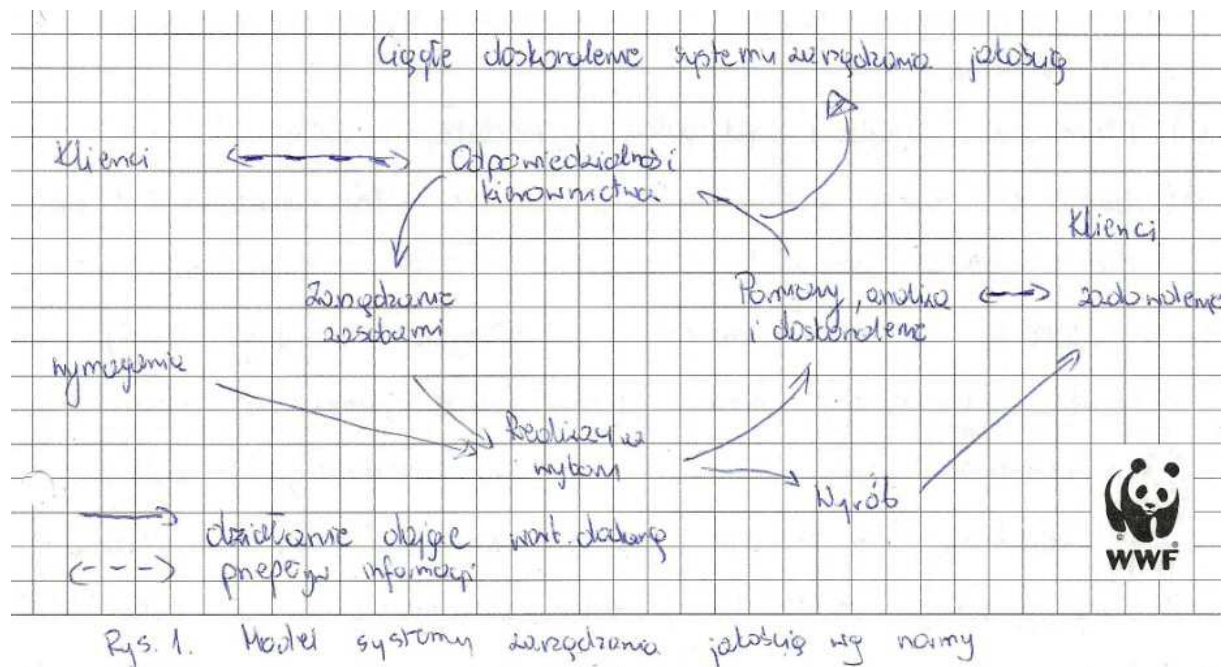 Ciągłe doskonalenie systemu zarządzania jakością
Klienci
Odpowiedzialność
kierownictwa
Klienci
Zarządzanie
zasobami
Pomiary, analiza
i doskonalenie
zadowolenie
wymagania
Realizacja
wyrobu
Wyrób
działanie dające wart. dodaną
przepływ informacji
WWF
Rys. 1. Model systemu zarządzania jakością wg normy